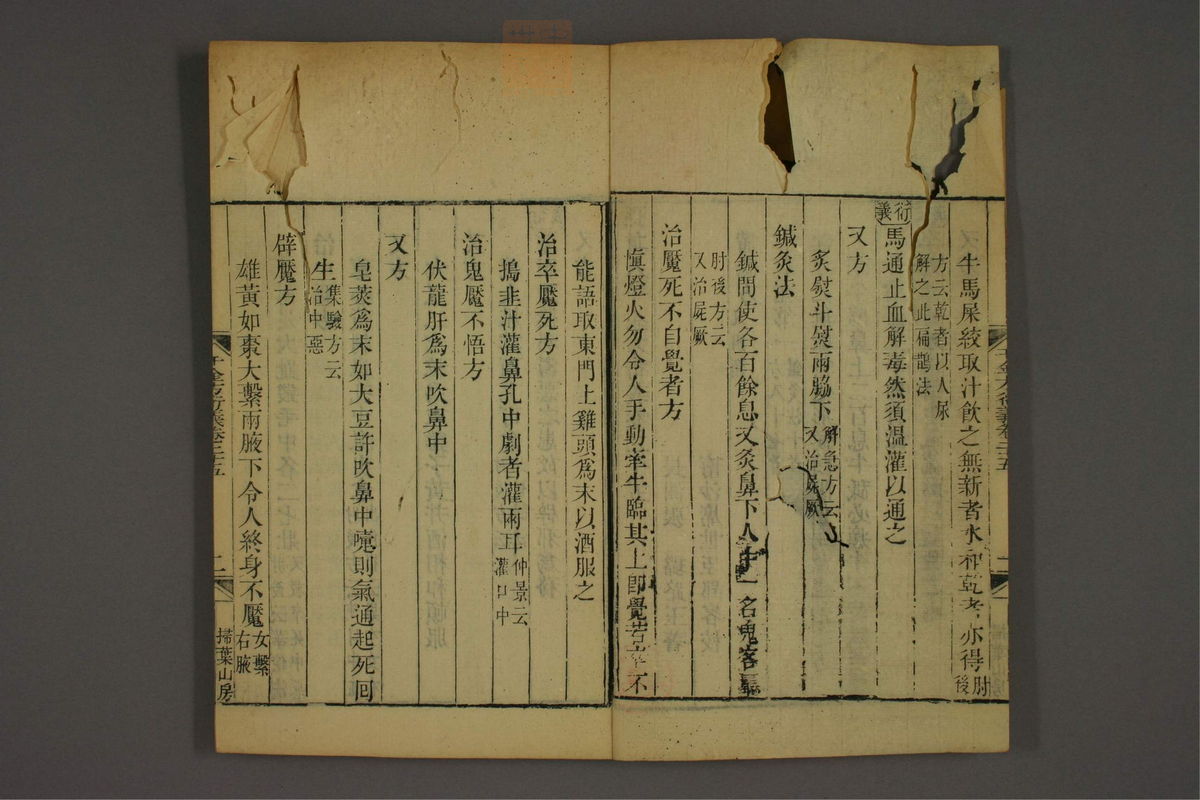 牛馬屎絞取汁飲之無新者水和乾者亦得肘後
方云乾者以人尿解之此扁鵲法
衍義
馬通止血解毒然須溫灌以通之
又方
炙熨斗熨兩脇下解急方云又治屍厥
鍼灸法
鍼間使各百餘息又灸鼻下人中一名鬼客
肘後方云又治屍厥
治魘死不自覺者方
慎燈火勿令人手動牽牛臨其上即覺若不
能語取東門上雞頭爲末以酒服之
治卒魘死方
搗韭汁灌鼻孔中劇者灌兩耳仲景云灌口中
治鬼魘不悟方
伏龍肝爲末吹鼻中
又方
皂莢爲末如大豆許吹鼻中嚏則氣通起死回
生集驗方云治中惡
辟魘方
雄黃如棗大繫兩腋下令人終身不魘女繫右腋
掃葉山房